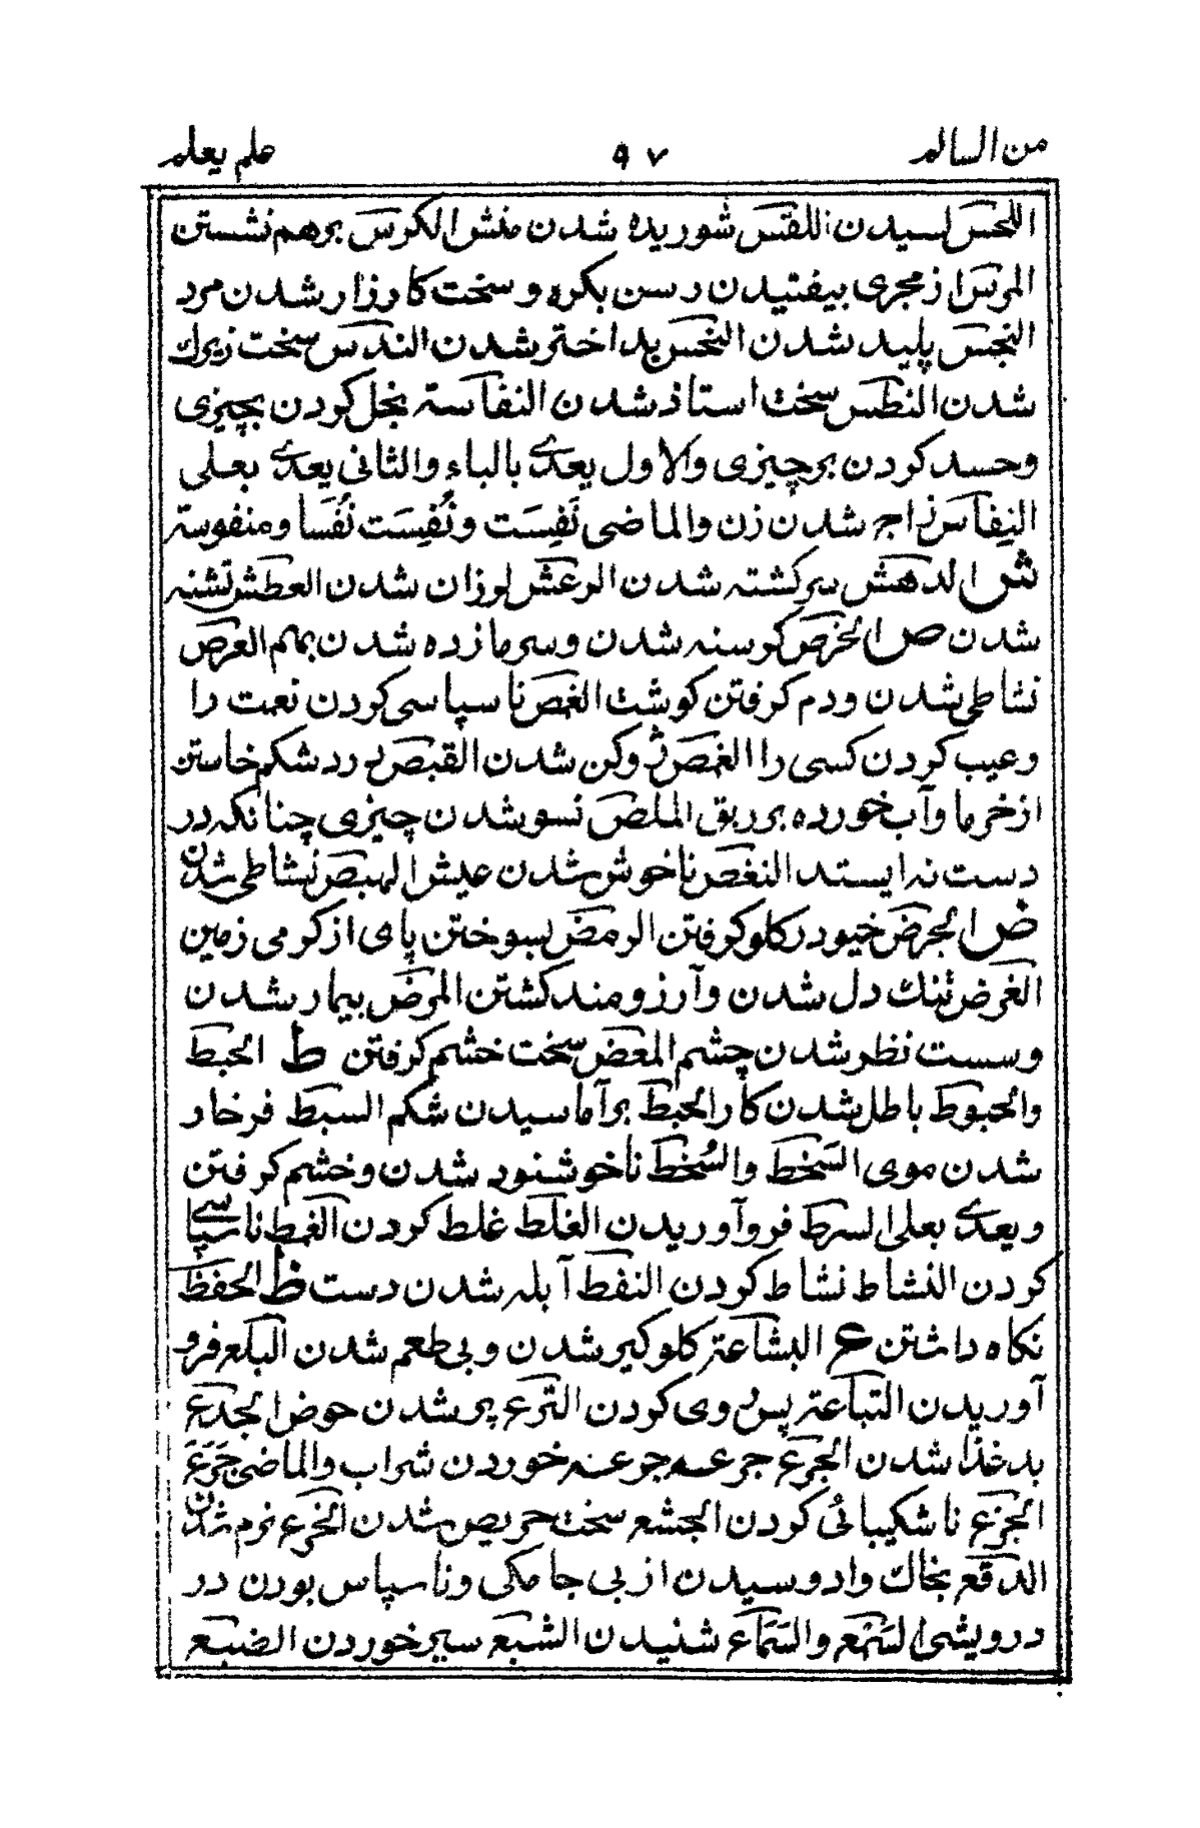 من السالم ٩٧ علم يعلم
اللحس لسيدن اللقس شوريده شدن منش الكرس برهم نشستن
المرس از مجرى بيفتيدن رسن بكره وسخت كارزار شدن مرد
النجس پليد شدن النحس بد اختر شدن الندس سخت زيرك
شدن النطس سخت استاذ شدن النفاسة بخل كردن بچيزى
وحسد كردن بر چيزى والاول يعدى بالباء والثانى يعدى بعلى
النِفاس زاج شدن زن والماضى نَفِسَت ونُفِسَت نُفَسا ومنفوسة
ش الدهش سر كشته شدن الرعش لرزان شدن العطش تشنه
شدن ص الخرص كرسنه شدن وسرما زده شدن بهم العرص
نشاطى شدن ودم كرفتن كوشت الغمص ناسپاسى كردن نعمت را
وعيب كردن كسى را الغمص ژوكن شدن القبص درد شكم خاستن
از خرما وآب خورده بر ريق الملص نسو شدن چيزى چنانكه در
دست نه ايستد النغص ناخوش شدن عيش الهبص نشاطى شدن
ض الجرض خيو در كلو كرفتن الرمض بسوختن پاى از كرمى زمين
الغرض تنك دل شدن وآرزومند كشتن المرض بيمار شدن
وسست نظر شدن چشم المعض سخت خشم كرفتن ط الحبط
والحبوط باطل شدن كار الحبط برآماسيدن شكم السبط فرخار
شدن موى السَخط والسُخط ناخوشنود شدن وخشم كرفتن
ويعدى بعلى السرط فروآوريدن الغلط غلط كردن الغمط ناسپاسى
كردن النشاط نشاط كردن النفط آبله شدن دست ظ الحفظ
نكاه داشتن ع البشاعة كلوكير شدن وبى طعم شدن البلع فرو
آوريدن التباعة پس روى كردن الترع پر شدن حوض الجدع
بد غذا شدن الجرع جرعه جرعه خوردن شراب والماضى جَرَعَ
الجزع ناشكيبائى كردن الجشع سخت حريص شدن الخرع نرم شدن
الدقع بخاك وادوسيدن از بى جامكى وناسپاس بودن در
درويشى السَمْع والسَمَاع شنيدن الشبع سير خوردن الضبع